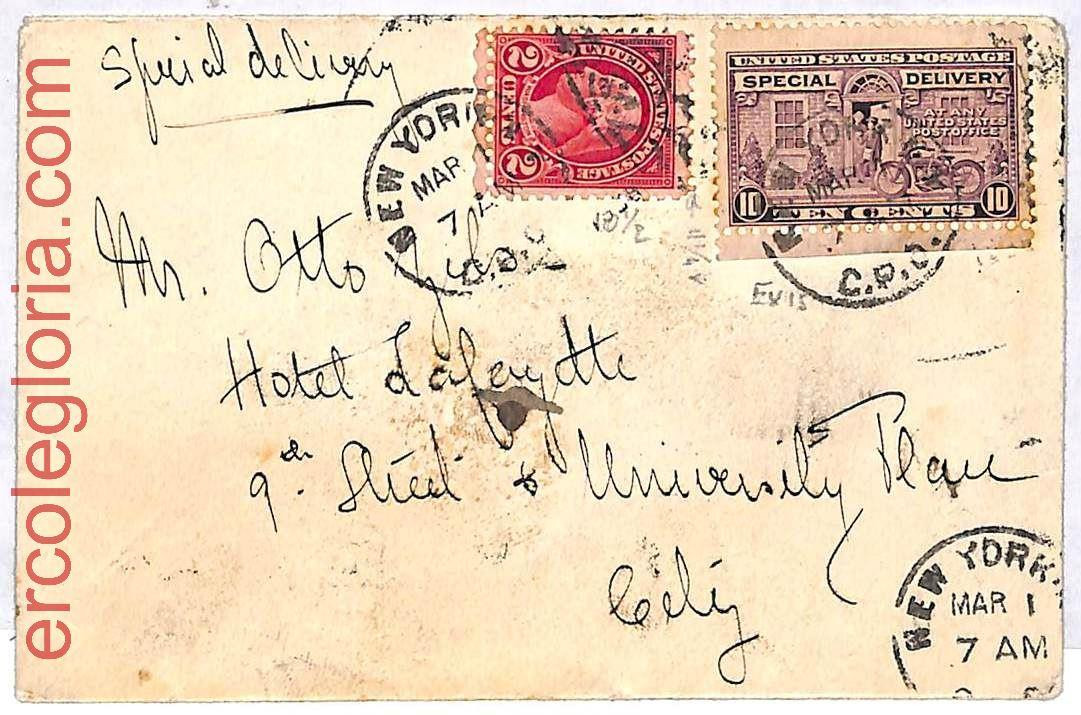 Special delivery
UNITED STATES POSTAGE
2 2
UNITED STATES POSTAGE
SPECIAL DELIVERY
AT ANY
UNITED STATES
POST OFFICE
10 TEN CENTS 10
NEW YORK
MAR
7
NEW YORK
MAR
G.P.O.
10 1/2
Mr. Otto
Hotel Lafayette
9th Street & University Place
City
NEW YORK
MAR 1
7 AM
ercolegloria.com